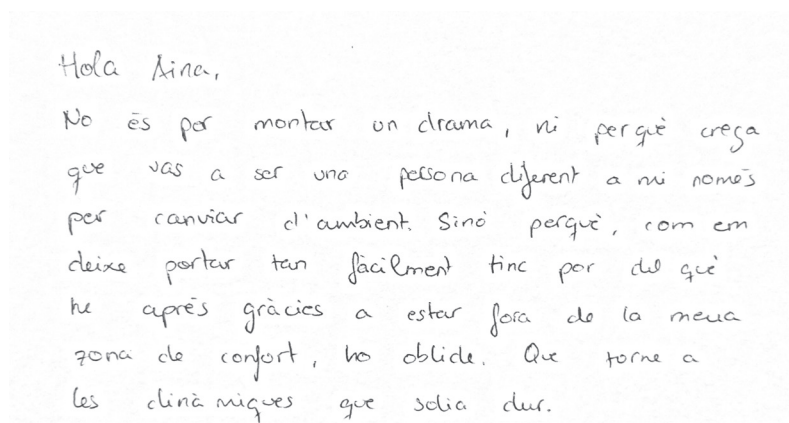 Hola Aina,
No és per montar un drama, ni perquè crega
que vas a ser una persona diferent a mi només
per canviar d'ambient. Sinó perquè, com em
deixe portar tan fàcilment tinc por del què
he aprés gràcies a estar fora de la meua
zona de confort, ho oblide. Que torne a
les dinàmiques que solia dur.